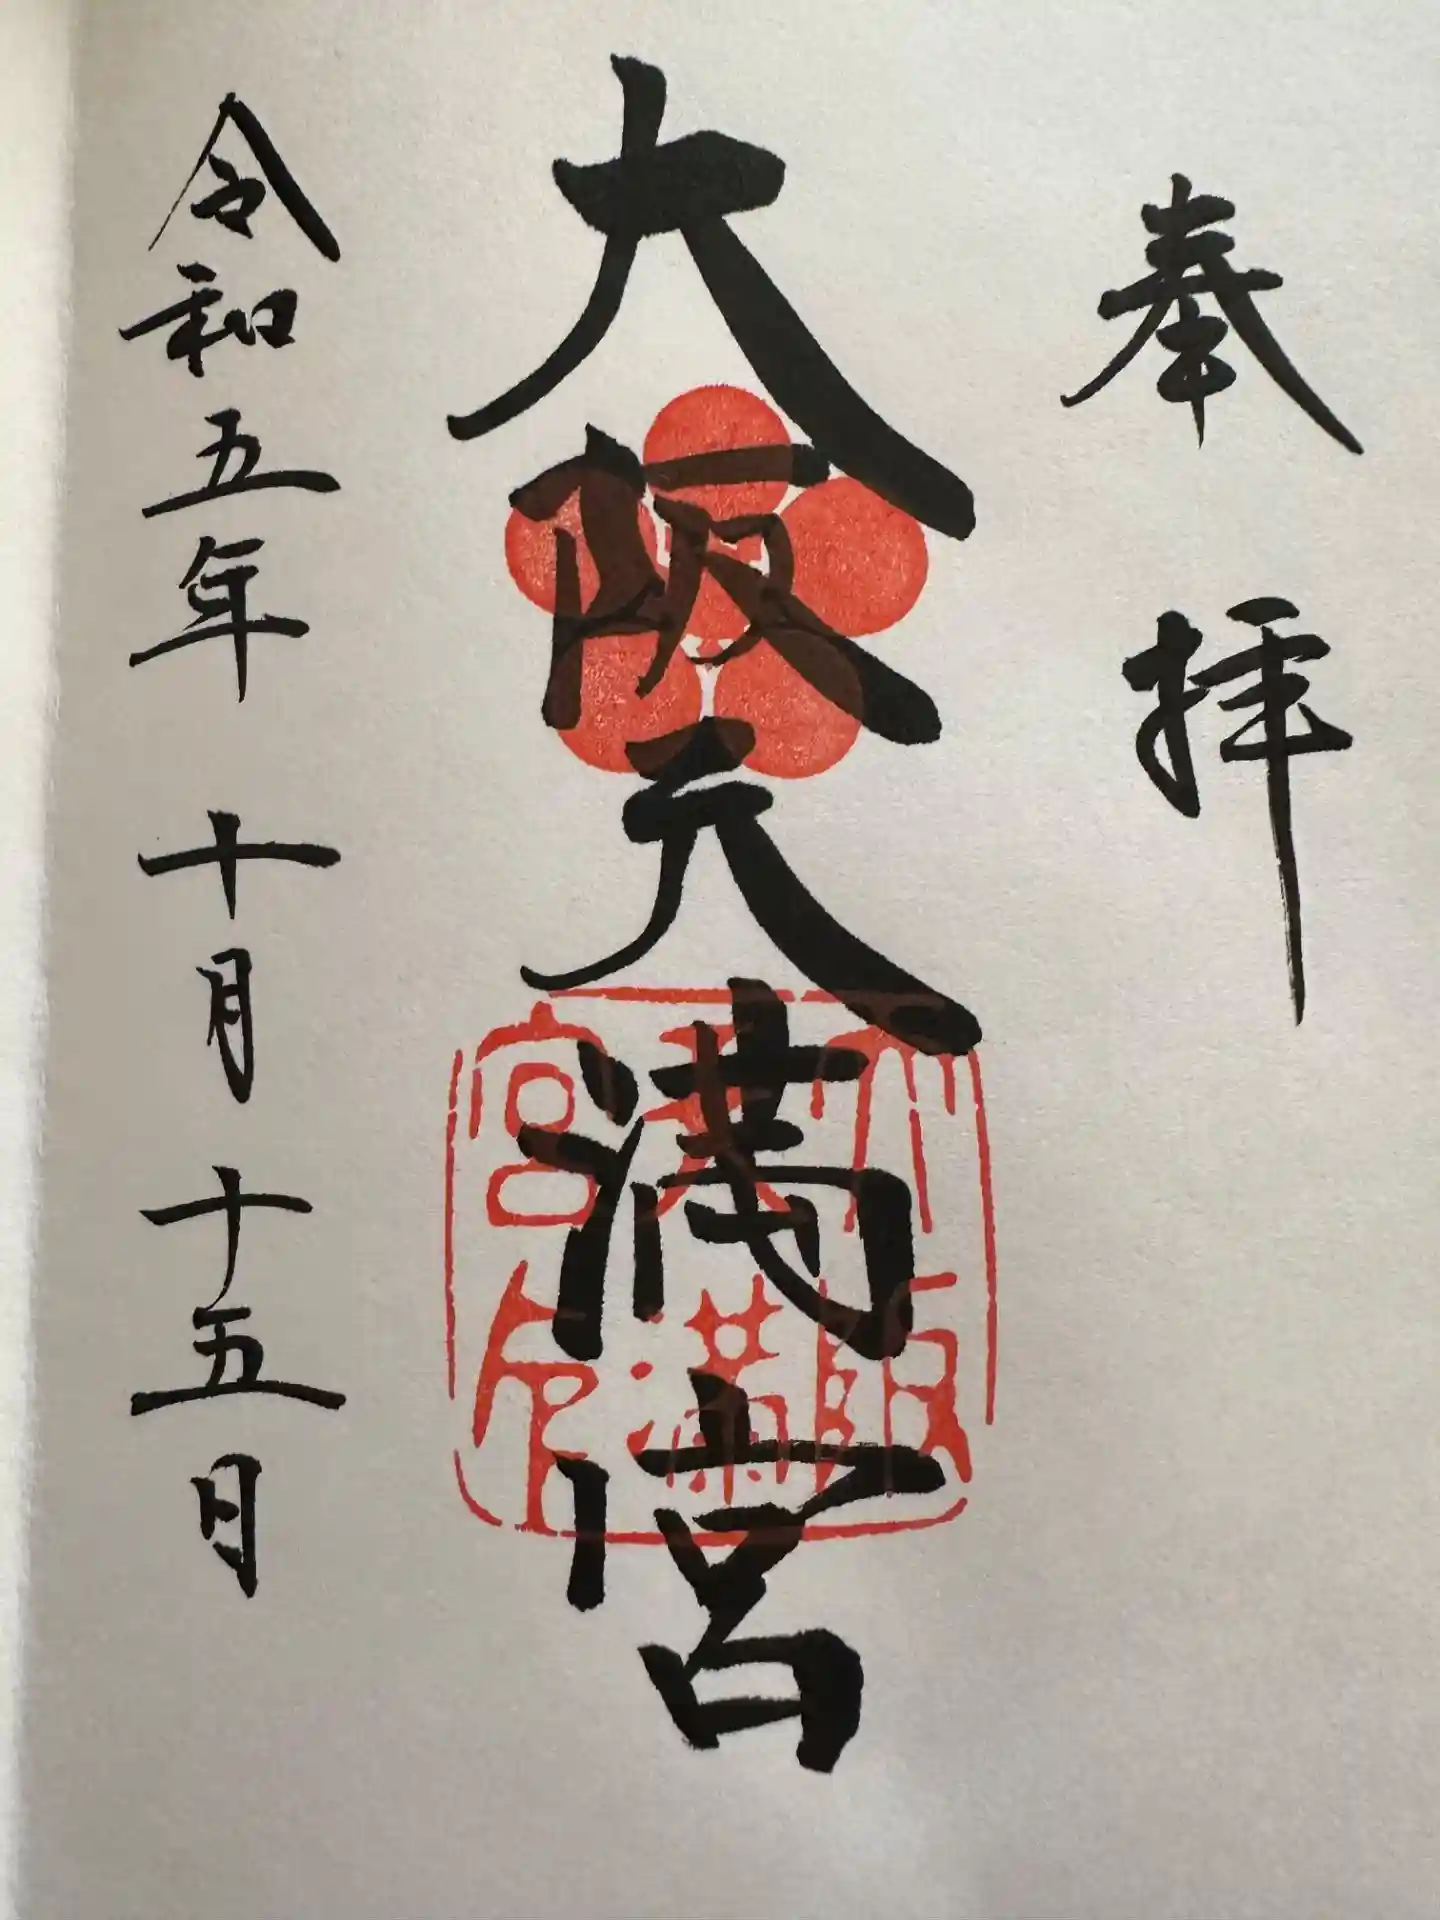 奉拝
大阪天満宮
大阪天満宮印
令和五年十月十五日